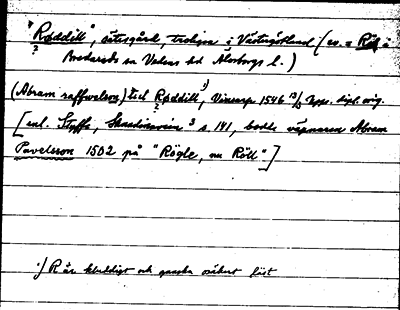 "Røddill", sätesgård, troligen i Västergötland (ev. = Röll i
?
Bredareds sn Vedens hd Älvsborgs l.)
(Abram raffwelson) til Røddill, 1) Vinarp 1546 13/3 Topp. dipl. orig.
?
[enl. Styffe, Skandinavien 3 s. 141, bodde väpnaren Abram
Pavelsson 1502 på "Rögle, nu Röll".]
1) R är kluddigt och ganska osäkert läst